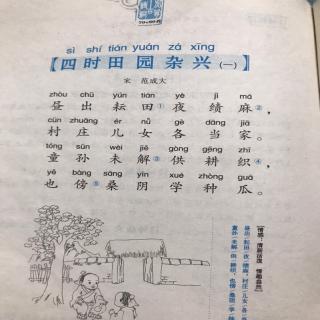 sì shí tián yuán zá xīng
【四时田园杂兴(一)】
宋 范成大
zhòu chū yún tián yè jì má
昼出耘田①夜绩麻②,
cūn zhuāng ér nǚ gè dāng jiā
村庄儿女各当家③。
tóng sūn wèi jiě gòng gēng zhī
童孙未解供耕织④,
yě bàng sāng yīn xué zhòng guā
也傍⑤桑阴学种瓜。